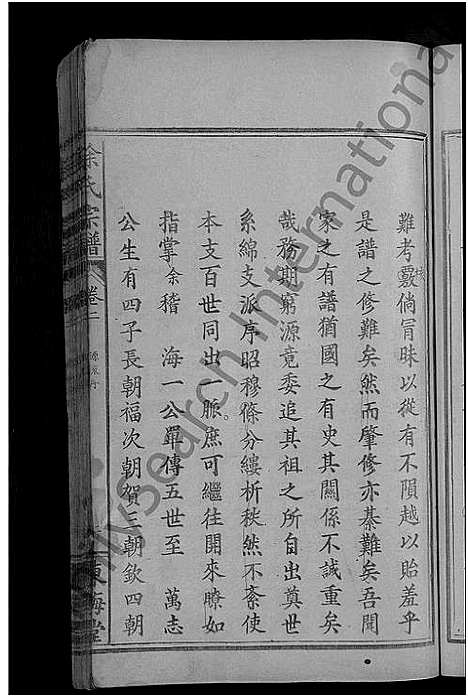 難考覈倘冒昧以從有不隕越以貽羞乎
是譜之修難矣然而肇修亦綦難矣吾聞
家之有譜猶國之有史其關係不誠重矣
哉務期窮源竟委追其祖之所自出奠世
系綿支派序昭穆條分縷析秩然不紊使
本支百世同出一脈庶可繼往開來瞭如
指掌余稽 海一公單傳五世至 萬志
公生有四子長朝福次朝賀三朝欽四朝
徐氏宗譜 卷二
東海堂
FamilySearch International